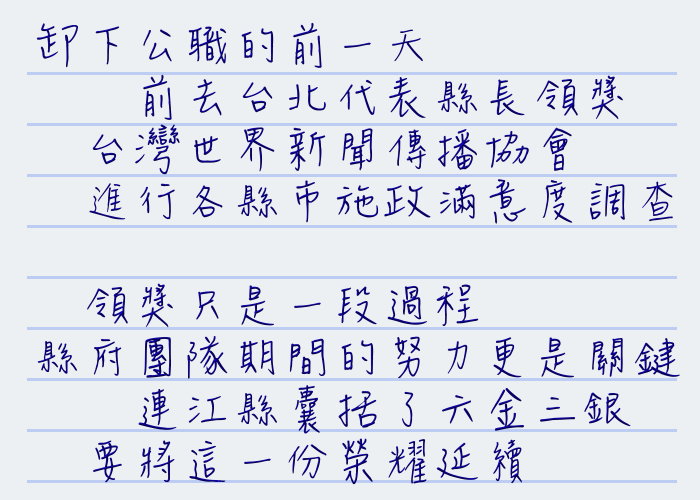 卸下公職的前一天
前去台北代表縣長領獎
台灣世界新聞傳播協會
進行各縣市施政滿意度調查
領獎只是一段過程
縣府團隊期間的努力更是關鍵
連江縣囊括了六金三銀
要將這一份榮耀延續